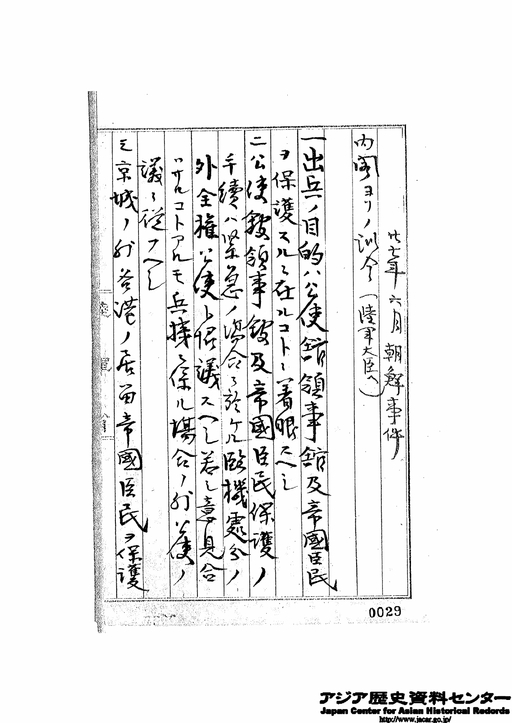 廿七年六月朝鮮事件
内閣ヨリノ訓令（陸軍大臣ヘ）
一出兵ノ目的ハ公使館領事館及帝國臣民
ヲ保護スルニ在ルコトニ着眼スヘシ
二公使館領事館及帝國臣民保護ノ
手續ハ緊急ノ場合ニ於ケル臨機處分ノ
外全權公使ト協議スヘシ若シ意見合
ハサルコトアルモ兵機ニ係ル場合ノ外公使ノ
議ニ從フヘシ
三京城ノ外各港ノ居留帝國臣民ヲ保護
陸軍省
0029
アジア歴史資料センター
Japan Center for Asian Historical Records
http://www.jacar.go.jp/